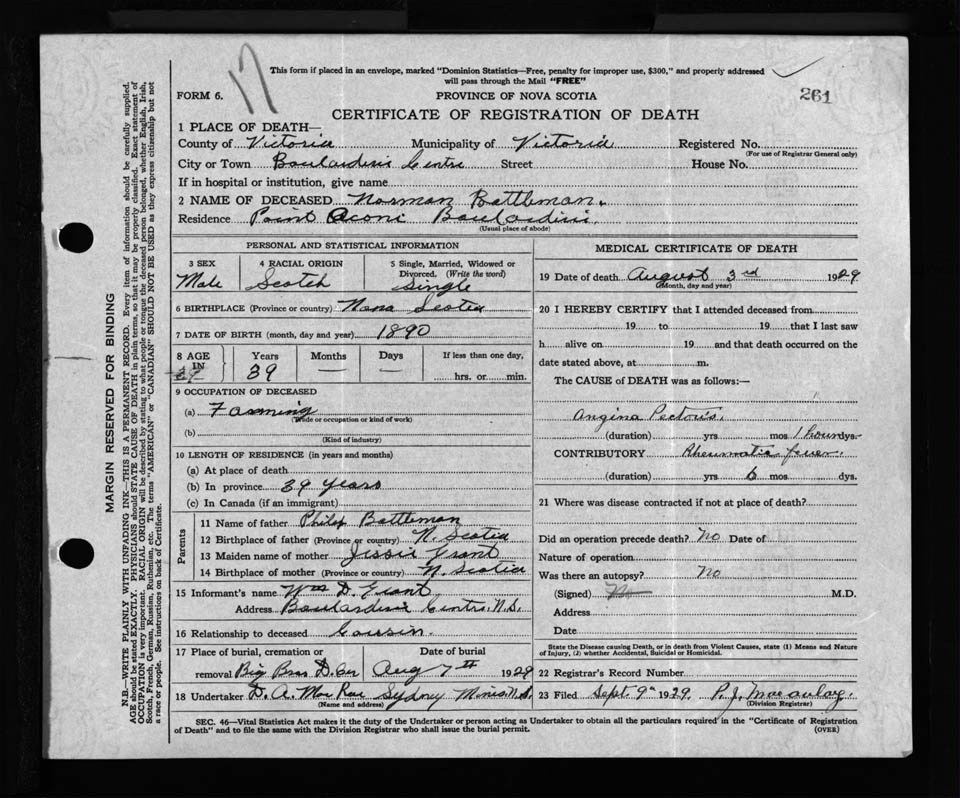 17
This form if placed in an envelope, marked "Dominion Statistics—Free, penalty for improper use, $300," and properly addressed
will pass through the Mail "FREE"
FORM 6.
PROVINCE OF NOVA SCOTIA
261
CERTIFICATE OF REGISTRATION OF DEATH
1 PLACE OF DEATH—
County of Victoria Municipality of Victoria Registered No.
(For use of Registrar General only)
City or Town Boulardirie Centre Street House No.
If in hospital or institution, give name
2 NAME OF DECEASED Norman Battleman.
Residence Point Aconi Boulardirie
(Usual place of abode)
PERSONAL AND STATISTICAL INFORMATION
3 SEX
Male
4 RACIAL ORIGIN
Scotch
5 Single, Married, Widowed or
Divorced. (Write the word)
Single
6 BIRTHPLACE (Province or country) Nova Scotia
7 DATE OF BIRTH (month, day and year) 1890
8 AGE IN Years Months Days If less than one day,
39 39 — — hrs. or min.
9 OCCUPATION OF DECEASED
(a) Farming
(Trade or occupation or kind of work)
(b)
(Kind of industry)
10 LENGTH OF RESIDENCE (in years and months)
(a) At place of death
(b) In province 39 years
(c) In Canada (if an immigrant)
Parents
11 Name of father Philip Battleman
12 Birthplace of father (Province or country) N. Scotia
13 Maiden name of mother Jessie Grant
14 Birthplace of mother (Province or country) N. Scotia
15 Informant's name Wm D. Grant
Address Boulardirie Centre N.S.
16 Relationship to deceased Cousin.
17 Place of burial, cremation or Date of burial
removal Big Bras D. Or Aug 7th 1929
18 Undertaker D. A. Mac Rae Sydney Mines N.S.
(Name and address)
MEDICAL CERTIFICATE OF DEATH
19 Date of death August 3rd 1929
(Month, day and year)
20 I HEREBY CERTIFY that I attended deceased from
19 to 19 that I last saw
h alive on 19 and that death occurred on the
date stated above, at m.
The CAUSE of DEATH was as follows:—
Angina Pectoris.
(duration) yrs mos 1 hour dys.
CONTRIBUTORY Rheumatic fever.
(duration) yrs 6 mos dys.
21 Where was disease contracted if not at place of death?
Did an operation precede death? No Date of
Nature of operation
Was there an autopsy? No
(Signed) No M.D.
Address
Date
State the Disease causing Death, or in death from Violent Causes, state (1) Means and Nature
of Injury, (2) whether Accidental, Suicidal or Homicidal.
22 Registrar's Record Number
23 Filed Sept. 9th 1929. P. J. Macaulay.
(Division Registrar)
SEC. 46—Vital Statistics Act makes it the duty of the Undertaker or person acting as Undertaker to obtain all the particulars required in the "Certificate of Registration
of Death" and to file the same with the Division Registrar who shall issue the burial permit.
(OVER)
MARGIN RESERVED FOR BINDING
N.B.—WRITE PLAINLY WITH UNFADING INK—THIS IS A PERMANENT RECORD. Every item of information should be carefully supplied.
AGE should be stated EXACTLY. PHYSICIANS should STATE CAUSE OF DEATH in plain terms, so that it may be properly classified. Exact statement of
OCCUPATION is very important. RACIAL ORIGIN will be described by stating to what people or tongue the deceased person belonged, whether English, Irish,
Scotch, French, German, Russian, Ruthenian, etc. The terms "AMERICAN" or "CANADIAN" SHOULD NOT BE USED as they express citizenship but not
a race or people. See instructions on back of Certificate.